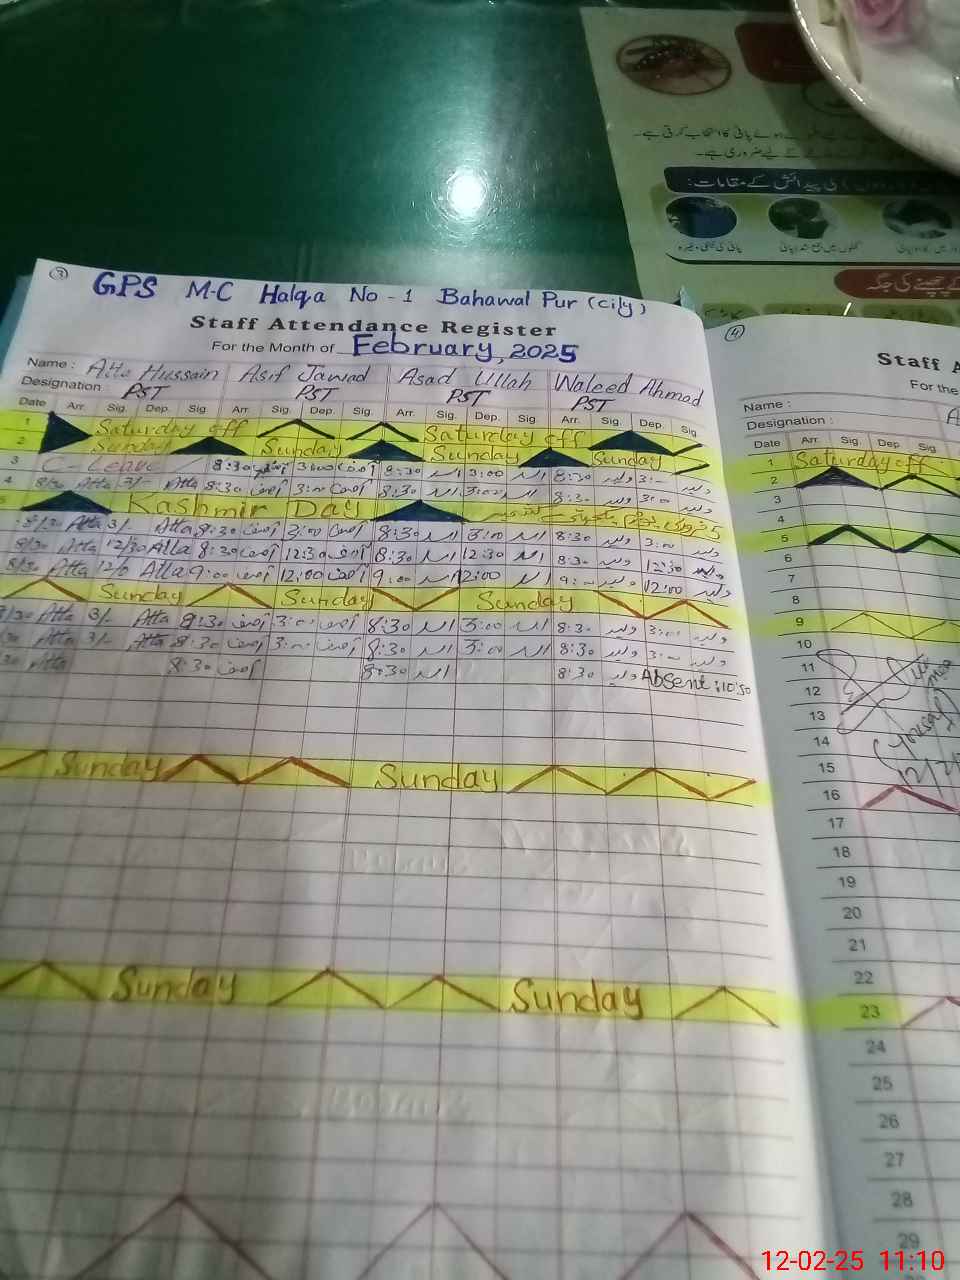 GPS M-C Halqa No - 1 Bahawal Pur (city)
Staff Attendance Register
For the Month of February, 2025
Name : Atta Hussain Asif Jawad Asad Ullah Waleed Ahmad
Designation : PST PST PST PST
Date Arr. Sig. Dep. Sig. Arr. Sig. Dep. Sig. Arr. Sig. Dep. Sig. Arr. Sig. Dep. Sig.
1 Saturday off Saturday off
2 Sunday Sunday Sunday Sunday
3 C-Leave 8:30 آصف 3:00 آصف 8:30 اسد 3:00 اسد 8:30 ولید 3:00 ولید
4 8/30 Atta 3/- Atta 8:30 آصف 3:00 آصف 8:30 اسد 3:00 اسد 8:30 ولید 3:00 ولید
5 Kashmir Day
8/30 Atta 3/- Atta 8:30 آصف 3:00 آصف 8:30 اسد 3:00 اسد 8:30 ولید 3:00 ولید
8/30 Atta 12/30 Atta 8:30 آصف 12:30 آصف 8:30 اسد 12:30 اسد 8:30 ولید 12:30 ولید
8/30 Atta Atta 9:00 آصف 12:00 آصف 9:00 اسد 12:00 اسد 9:00 ولید 12:00 ولید
Sunday Sunday Sunday
8/30 Atta 3/- Atta 8:30 آصف 3:00 آصف 8:30 اسد 3:00 اسد 8:30 ولید 3:00 ولید
30 Atta 3/- Atta 8:30 آصف 3:00 آصف 8:30 اسد 3:00 اسد 8:30 ولید 3:00 ولید
30 Atta 8:30 آصف 8:30 اسد 8:30 ولید Absent :10:50
Sunday Sunday
Sunday Sunday
4
Staff A
For the
Name :
Designation :
Date Arr. Sig. Dep. Sig
1 Saturday off
2
3
4
5
6
7
8
9
10
11
12
13
14
15
16
17
18
19
20
21
22
23
24
25
26
27
28
29
کی پیدائش کے مقامات:
کے چھپنے کی جگہ
12-02-25 11:10